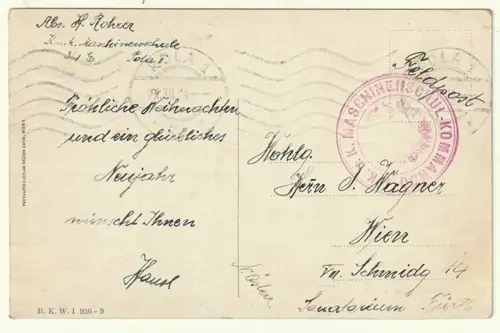 Abs. H. Rohrer
K.u.k. Maschinenschule
Pola
POLA 1
Feldpost
K. u. K. MASCHINENSCHUL-KOMMANDO
Fröhliche Weihnachten
und ein glückliches
Neujahr
wünscht Ihnen
Hansl
Wohlg.
Herrn J. Wagner
Wien
Schmidg 14
Sanatorium Fürth
B. K. W. I 930-9